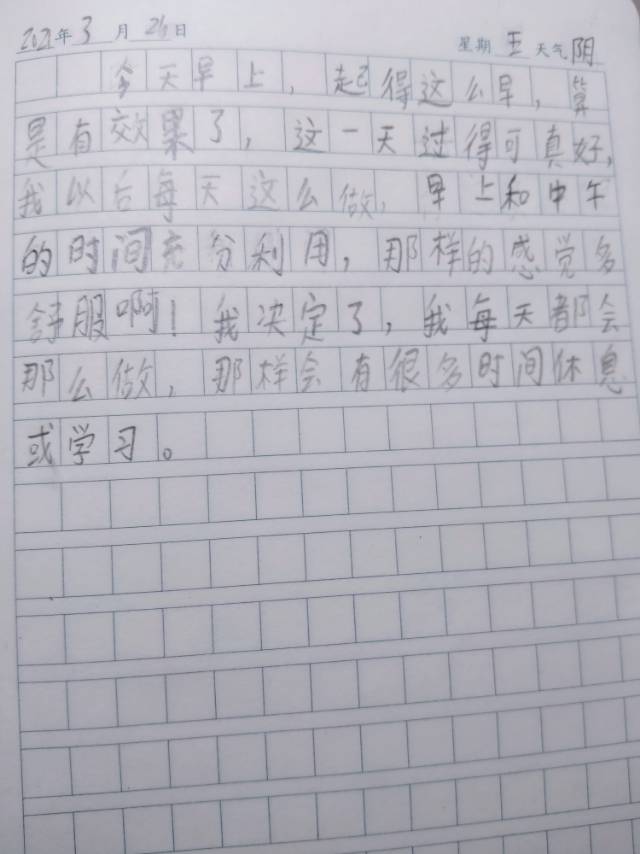 2021年3月26日 星期五天气阴
今天早上，起得这么早，算
是有效果了，这一天过得可真好，
我以后每天这么做，早上和中午
的时间充分利用，那样的感觉多
舒服啊！我决定了，我每天都会
那么做，那样会有很多时间休息
或学习。